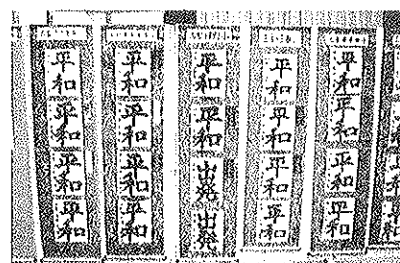 平和平和平和平和
平和平和平和平和
平和平和出発出発
平和平和平和平和
平和平和平和平和